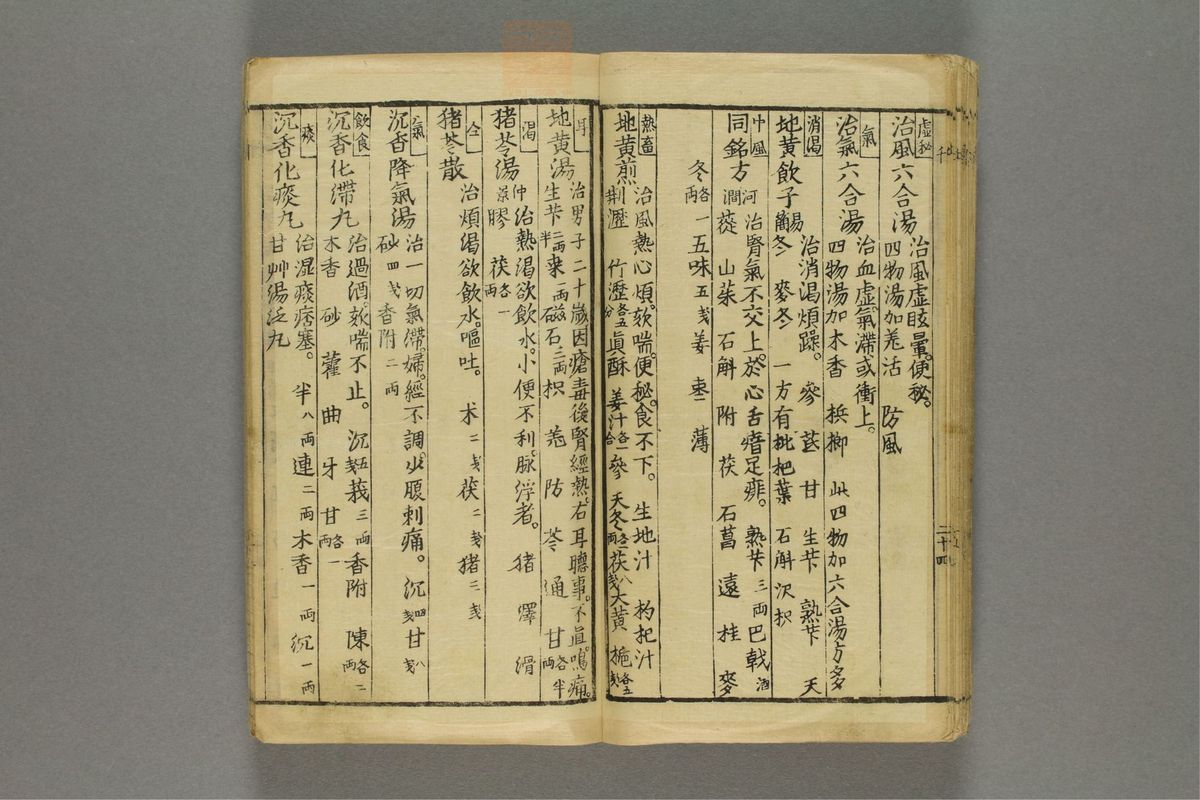 虛秘
治風六合湯
治風虛眩暈。便秘。
四物湯加羌活 防風
氣
治氣六合湯
治血虛氣滯或衝上。
四物湯加木香 檳榔 此四物加六合湯方多
消渴
地黄飲子
易簡
治消渴煩躁。 參 芪 甘 生苄 熟苄 天
冬 麥冬 一方有枇杷葉 石斛 沢 枳
中風
同銘方
河澗
治腎氣不交上。於心舌瘖足痱。 熟苄三両 巴戟酒
蓯 山茱 石斛 附 茯 石菖 遠 桂 麥
冬各一両 五味五戔 姜 棗 薄
熱畜
地黄煎
治風熱心煩。欬喘。便秘。食不下。 生地汁 枸杞汁
荆瀝 竹瀝各五分 眞酥 姜汁各一合 參 天冬各二両 茯八戔 大黄 梔各五戔
耳
地黄湯
治男子二十歲因瘡毒後腎經熱。右耳聽事。不眞。鳴痛。
生苄二両半 桒一両 磁石二両 枳 羌 防 苓 通 甘各半両
渴
猪苓湯
仲景
治熱渴欲飲水。小便不利。脉浮者。 猪 澤 滑
膠 茯各一両
仝
猪苓散
治煩渴欲飲水。嘔吐。 术二戔 茯二戔 猪三戔
氣
沉香降氣湯
治一切氣滯。婦。經不調。少腹刺痛。 沉四戔 甘八戔
砂四戔 香附二両
飲食
沉香化滯丸
治過酒。欬喘不止。 沉五戔 莪三両 香附 陳各二両
木香 砂 藿 曲 牙 甘各一両
痰
沉香化痰丸
治湿痰痞塞。 半八両 連二両 木香一両 沉一両
甘艸湯泛丸
二十四